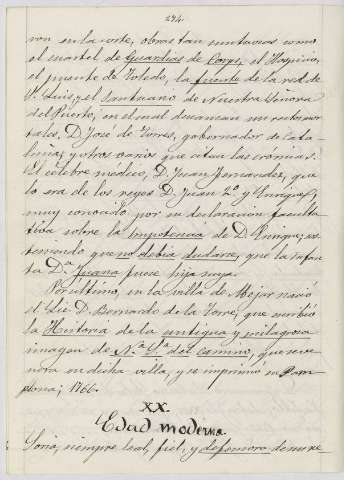 274.
ron en la corte, obras tan suntuosas como
el cuartel de Guardias de Corps, el Hospicio,
el puente de Toledo, la fuente de la red de
Sn. Luis, y el Santuario de Nuestra Señora
del Puerto, en el cual descansan sus restos mor
tales, D. José de Torres, gobernador de Cata
luña; y otros varios que citan las crónicas.
El célebre médico, D. Juan Fernandez, que
lo era de los reyes D. Juan 2º y Enrique,
muy conocido por su declaración faculta
tiva sobre la impotencia de D. Enrique; sos
teniendo que no debia dudarse, que la infan
ta D.a Juana fuese hija suya.
Por último, en la villa de nació
el Lic. D. Bernardo de la Torre, que escribió
la Historia de la antigua y milagrosa
imagen de N.a S.a del Camino, que se ve
nera en dicha villa, y se imprimió en Pam
plona; 1766.
XX.
Edad moderna.
Soria, siempre leal, fiel, y defensora de sus re